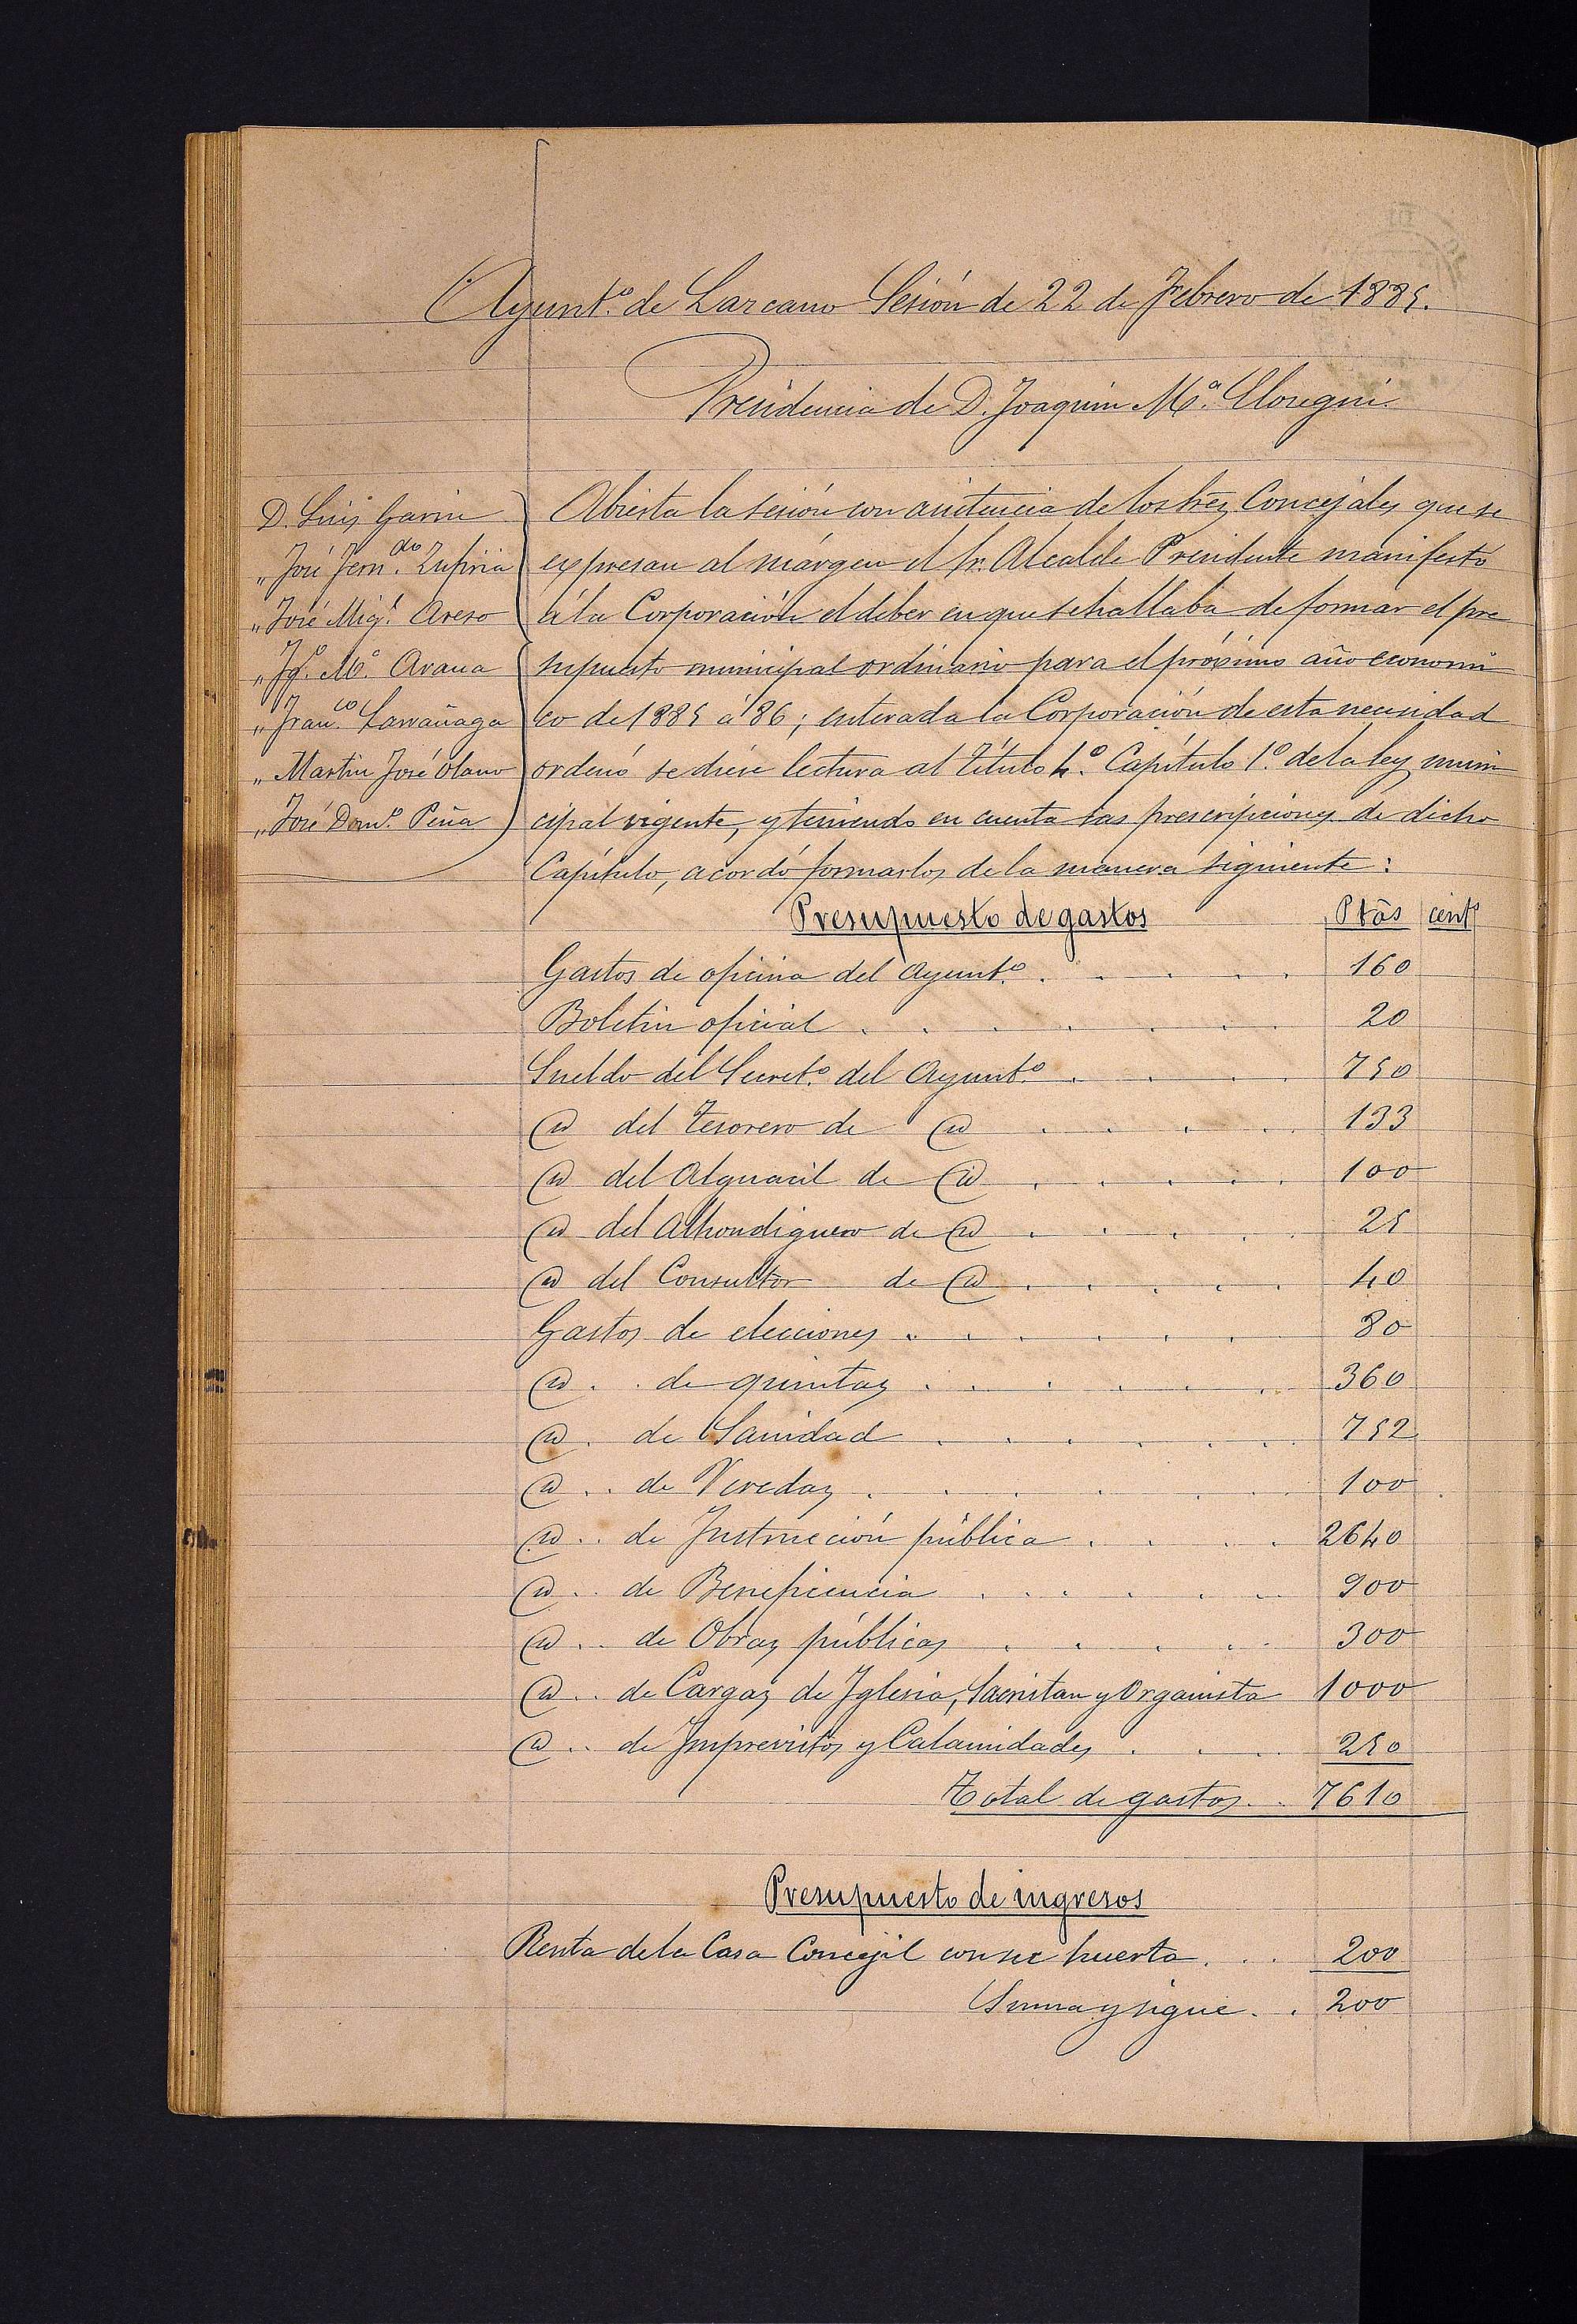 Ayunt.º de Lazcano Sesión de 22 de Febrero de 1885.
Presidencia de D. Joaquin M.ª Elosegui.
D. Luis Garin
" José Fern.do Zufiria
" José Mig.l Areso
" Ig.º M.ª Arana
" Fran.co Larrañaga
" Martin José Olano
" José Dom.º Peña
Abierta la sesión con asistencia de los Sres Concejales que se
expresan al márgen el Sr. Alcalde Presidente manifestó
á la Corporación el deber en que se hallaba de formar el pre
supuesto municipal ordinario para el próximo año económi
co de 1885 á 86; enterada la Corporación de esta necesidad
ordenó se diese lectura al título 4.º Capítulo 1.º de la ley muni
cipal vigente, y teniendo en cuenta las prescripciones de dicho
Capítulo, acordó formarlos de la manera siguiente:
Presupuesto de gastos Ptas cents
Gastos de oficina del Ayunt.º . . . . . 160
Boletin oficial . . . . . . 20
Sueldo del Secret.º del Ayunt.º . . . . 750
@ del Tesorero de @ . . . . 133
@ del Alguacil de @ . . . . . 100
@ del Alhondiguero de @ . . . . . 25
@ del Consultor de @ . . . . . 40
Gastos de elecciones . . . . . . 80
@ . . de quintas . . . . . . 360
@ . de Sanidad . . . . . . 752
@ . . de Veredas . . . . . 100
@ . . de Instrucción pública . . . . 2640
@ . . de Beneficencia . . . . . 900
@ . . de Obras públicas . . . . . 300
@ . . de Cargas de Iglesia, Sacristan y Organista 1000
@ . . de Imprevistos y Calamidades . . . 250
Total de gastos . . 7610
Presupuesto de ingresos
Renta de la Casa Concejil con su huerta . . . 200
Suma y sigue . . 200